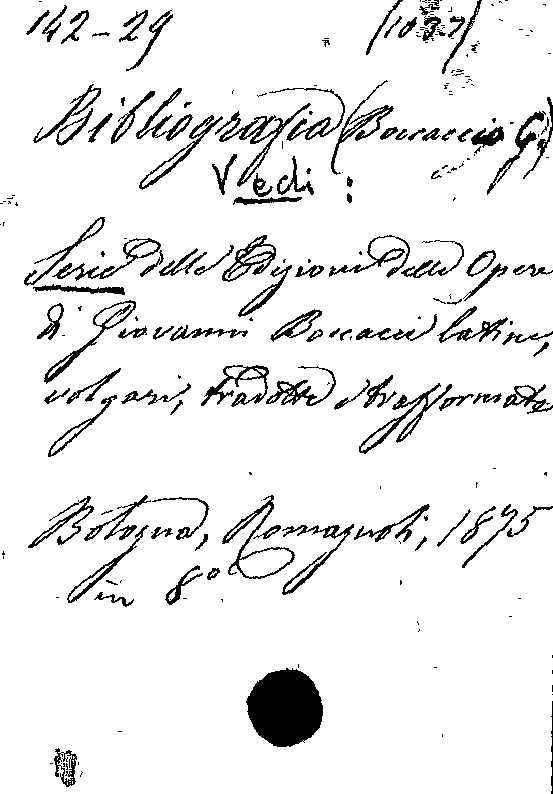 142-29 (1037)
Bibliografia (Boccaccio G.)
Vedi:
Serie delle Edizioni delle Opere
di Giovanni Boccacci latine,
volgari, tradotte e trasformate
Bologna, Romagnoli, 1875
in 8º